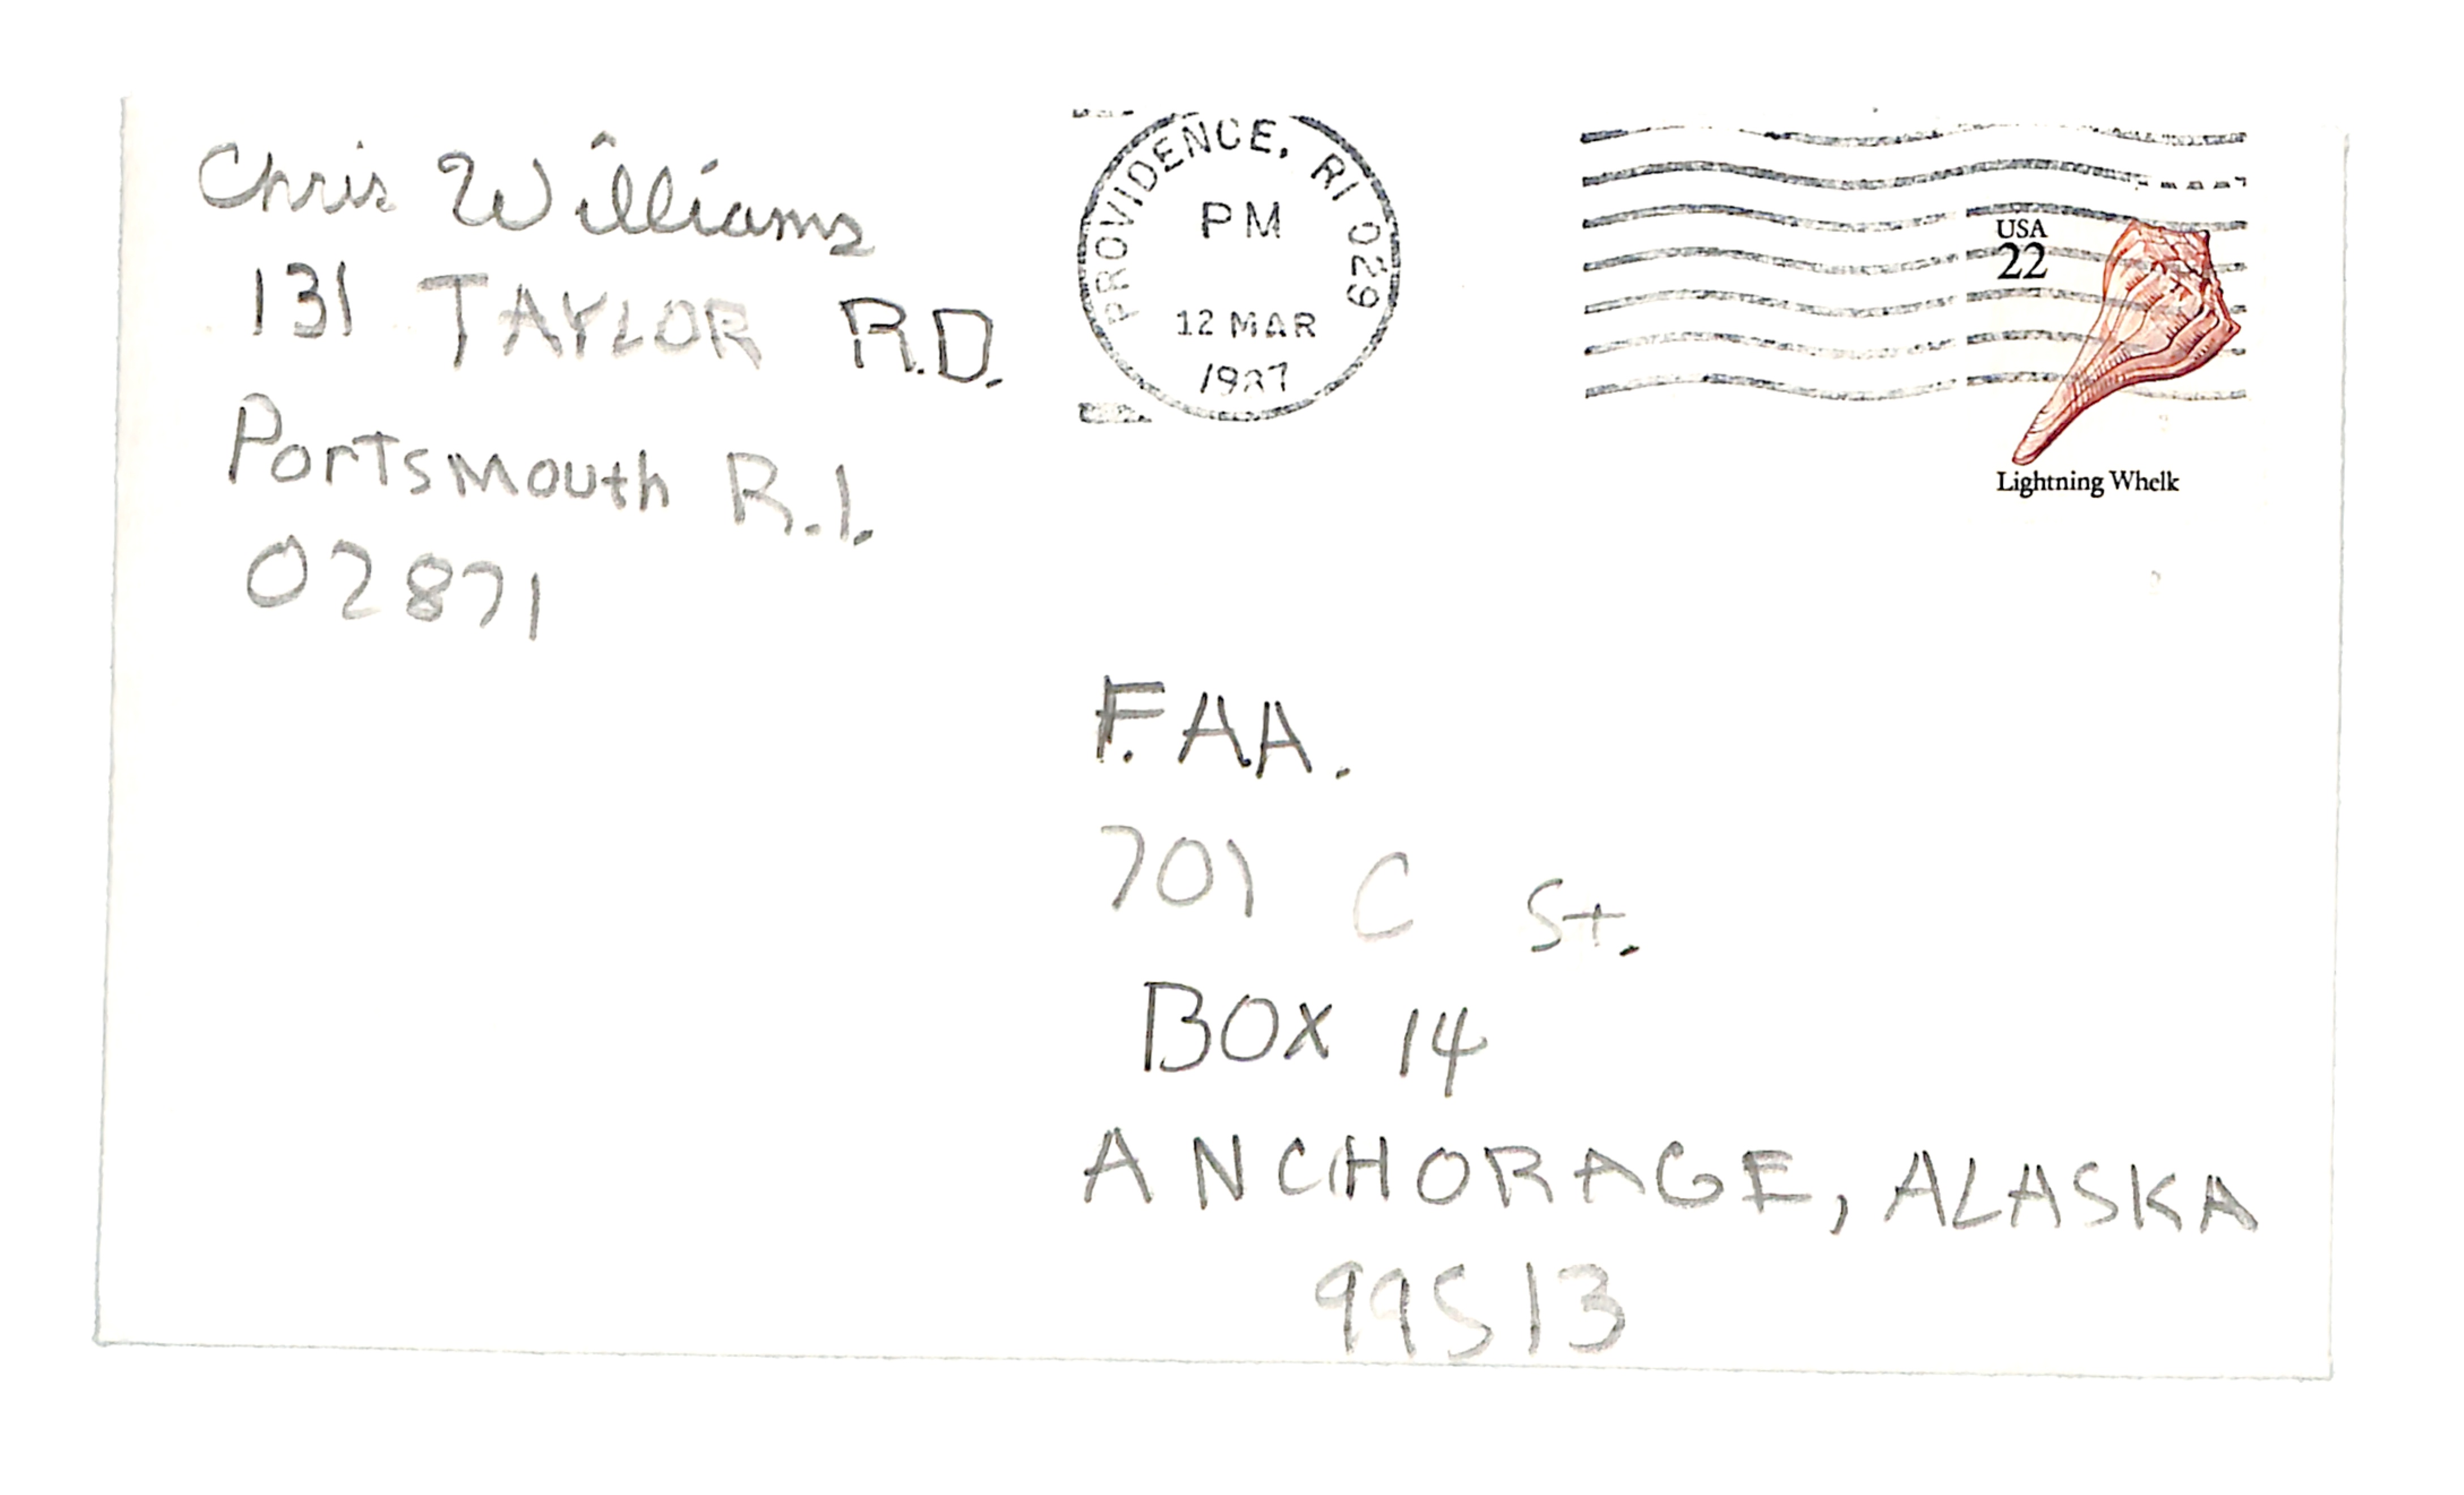 Chris Williams
131 TAYLOR R.D.
Portsmouth R.I.
02871
PROVIDENCE, RI 029
PM
12 MAR
1987
USA
22
Lightning Whelk
F.AA.
701 C St.
BOX 14
ANCHORAGE, ALASKA
99513